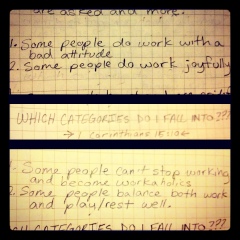 are asked and more.
1. Some people do work with a
bad attitude
2. Some people do work joyfully
WHICH CATEGORIES DO I FALL INTO???
→ 1 Corinthians
Some people can't stop working
and become workaholics.
2. Some people balance both work
and play/rest well.
CATEGORIES DO I FALL INTO???